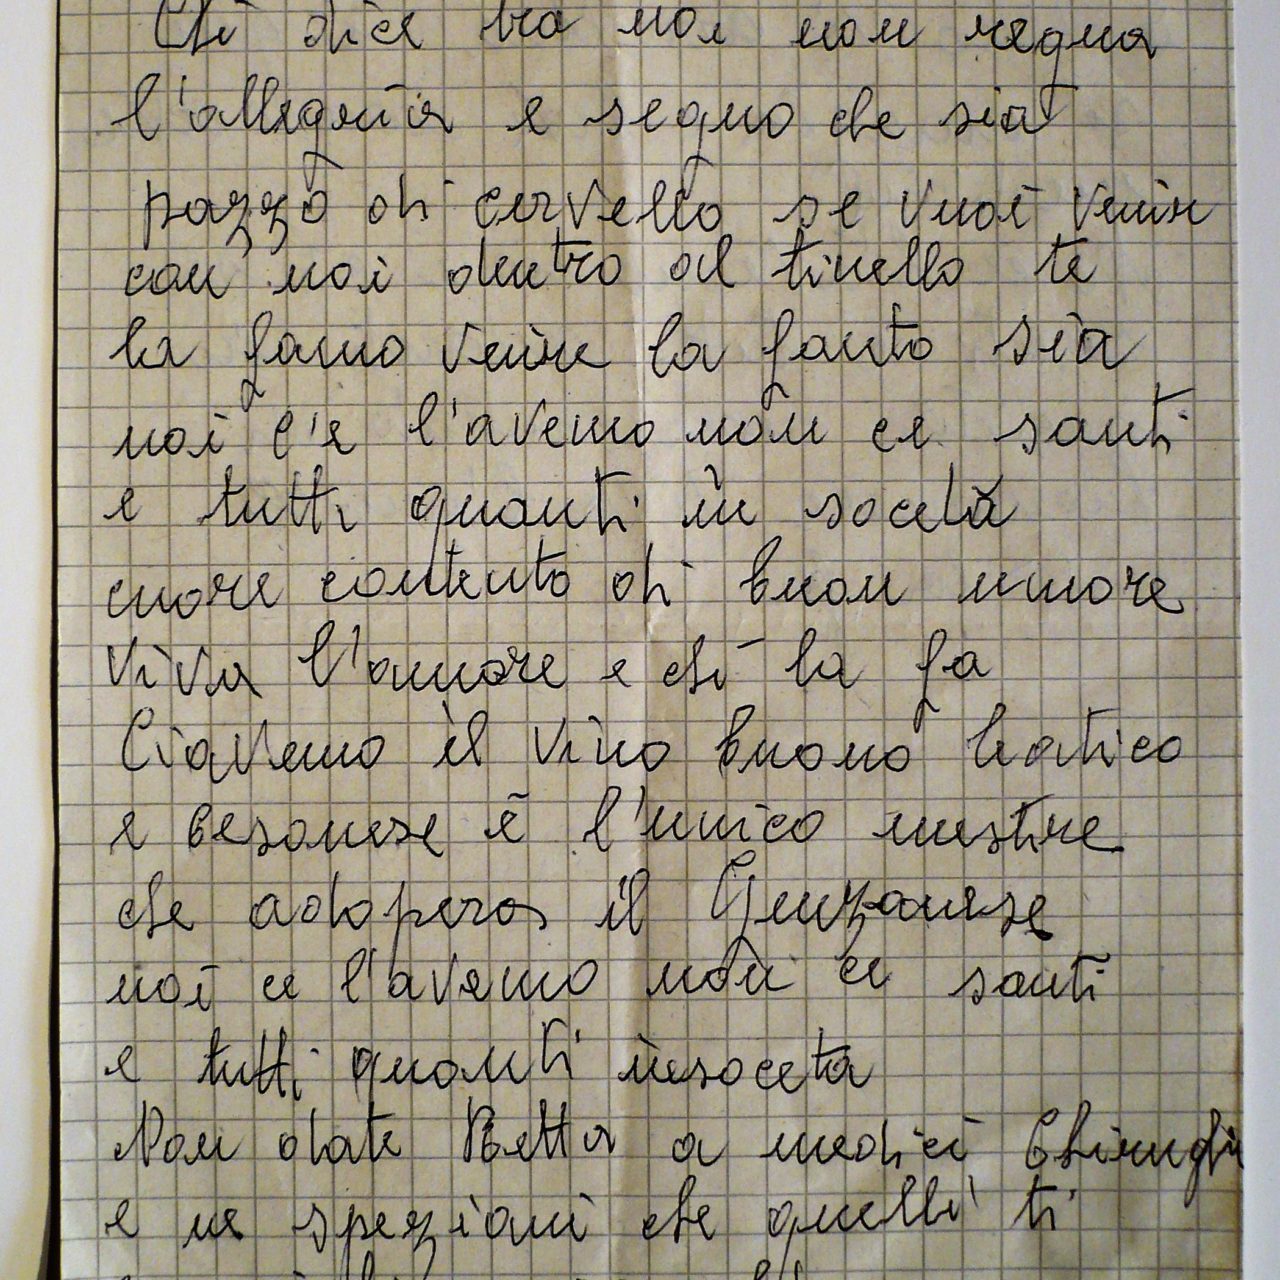 Chi dice tra noi non regna
l'allegria e segno che sia
pazzo di cervello se vuoi venire
con noi dentro al tinello te
la famo venire la fanto sia
noi c'e l'avemo non ce santi
e tutti quanti in socetà
cuore contento di buon umore
Viva l'amore e chi la fa
Ciavemo il vino buono
e è l'unico mestire
che adopera il Genzanese
noi ce l'avemo non ce santi
e tutti quanti insoceta
Non date Retta a medici Chirughi
e ne speziani che quelli ti